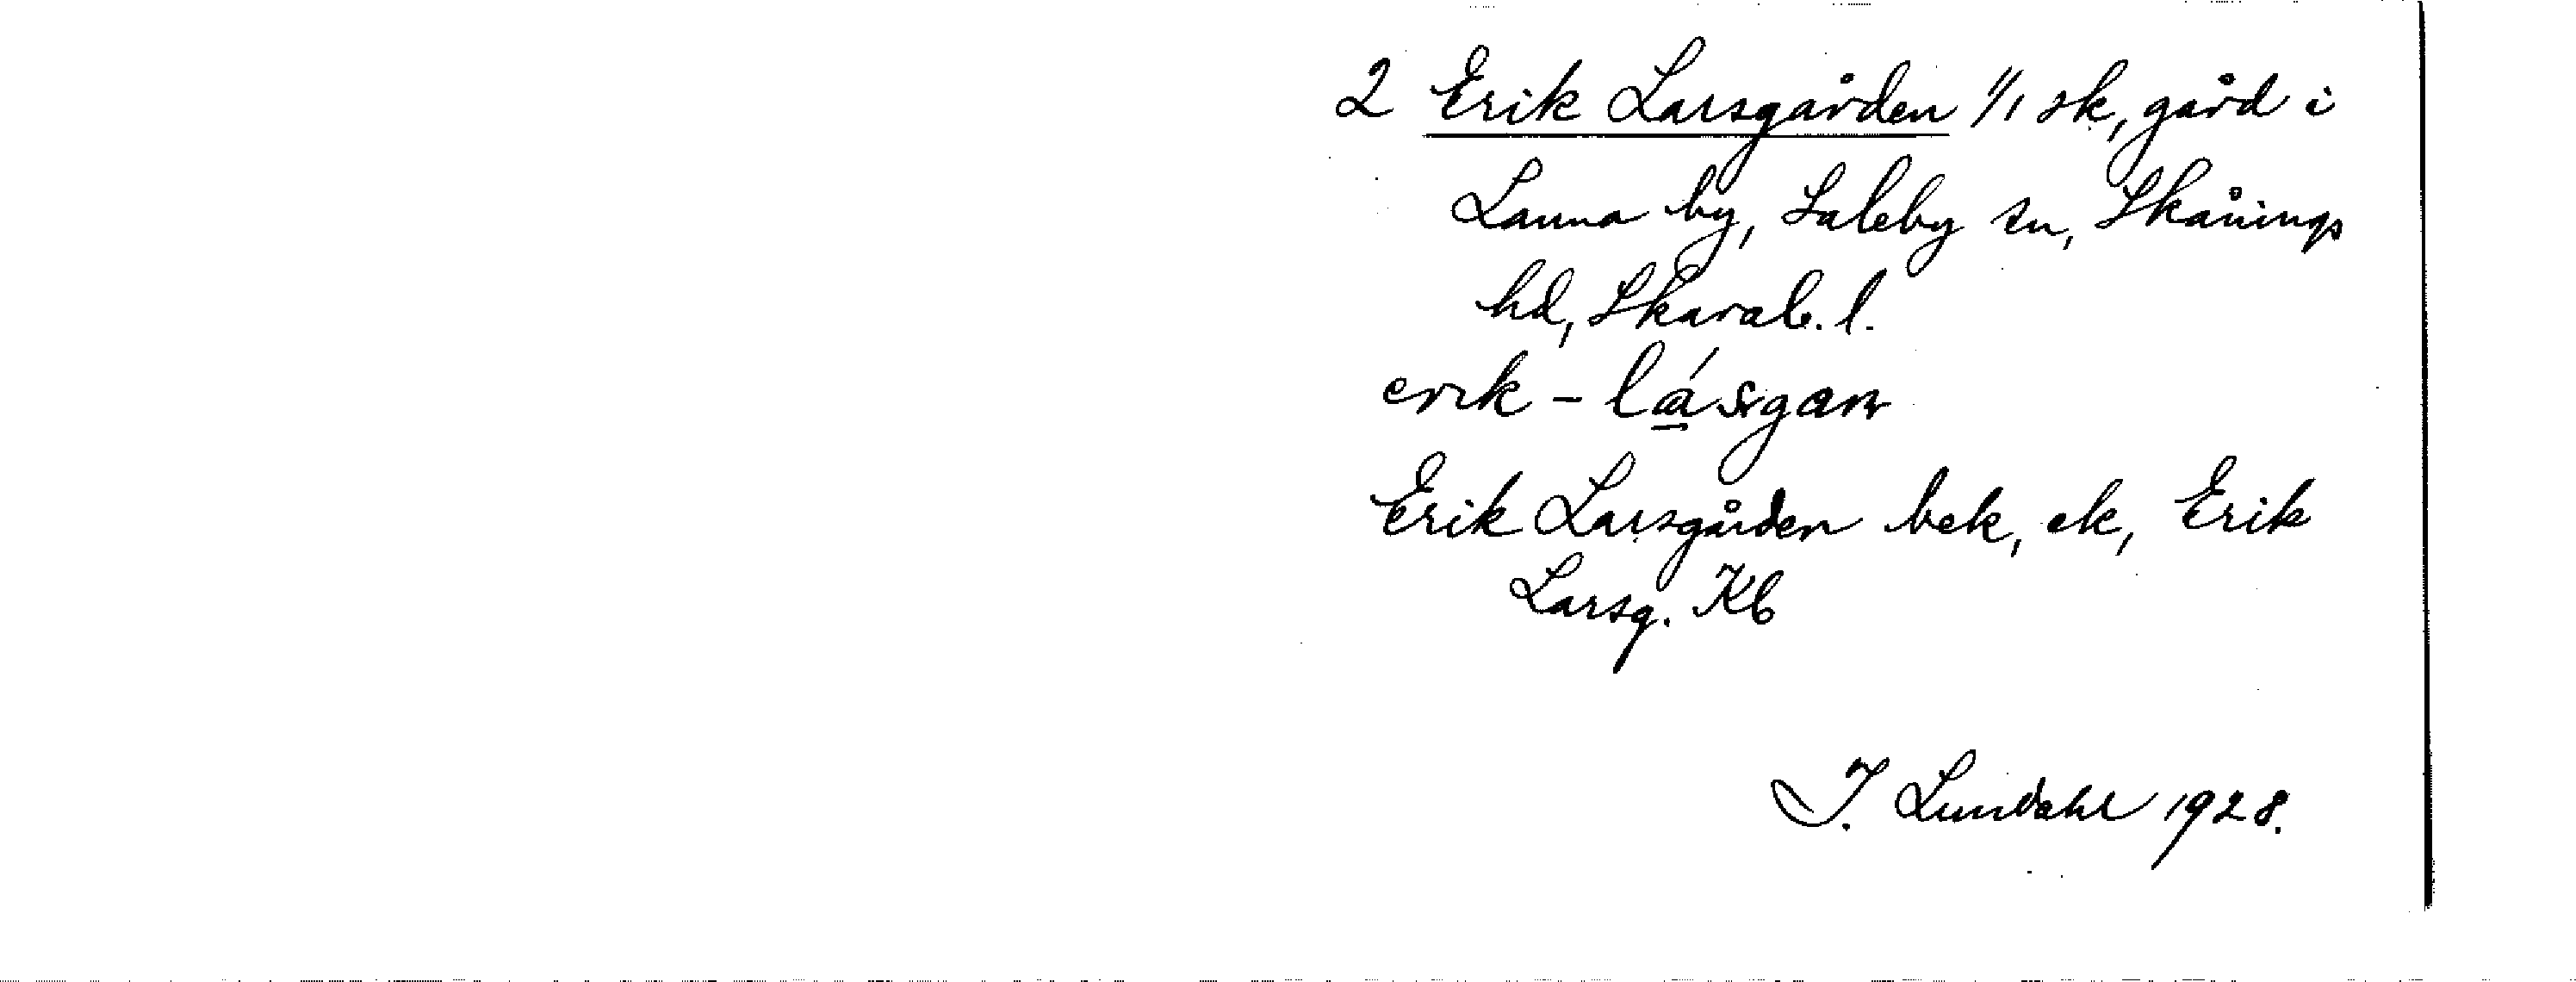 2 Erik Larsgården 1/1 sk, gård i
Launa by, Saleby sn, Skånings
hd, Skarab. l.
erik - lásgan
Erik Larsgården bek, ek, Erik
Larsg. Kb
I. Lundahl 1928.